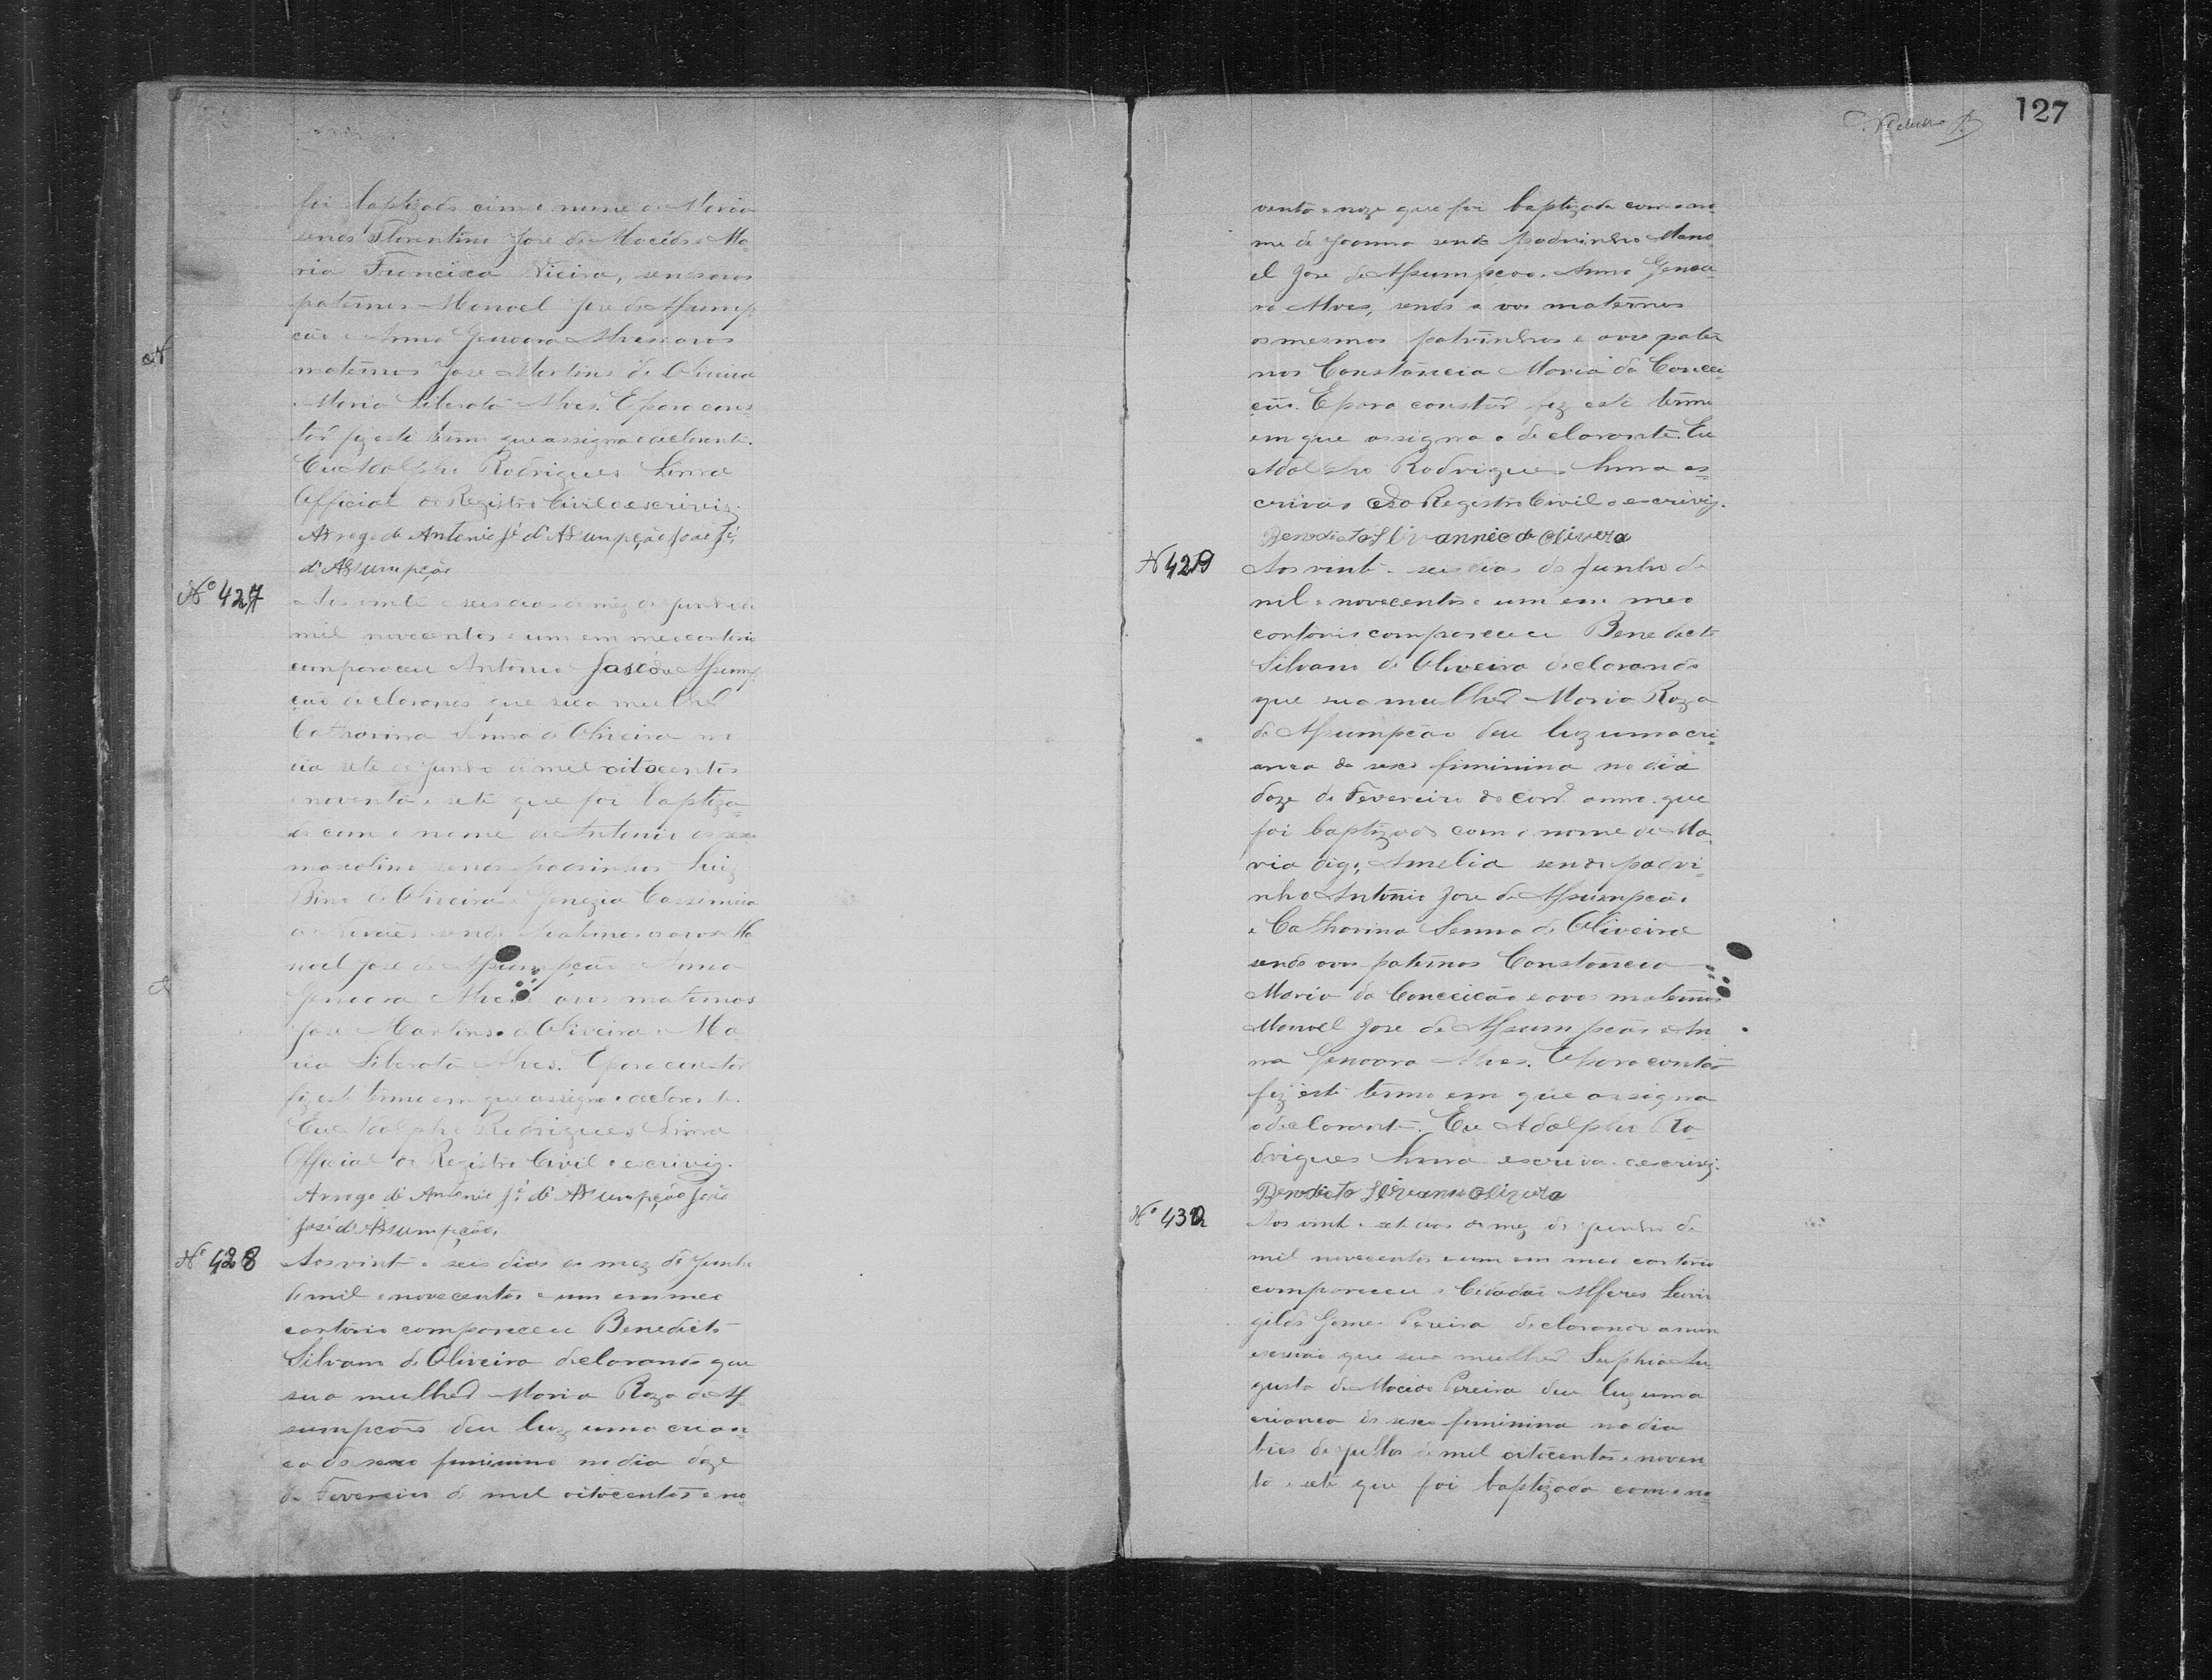 foi baptizado com o nome de Maria
sendo Florentino Jose de Macêdo e Ma=
ria Francisca Vieira, sendo avos
paternos Manoel Jose de Assump=
ção e Anna Genoara Alves e avos
maternos Jose Martins de Oliveira
e Maria Liberata Alves. E para cons=
tar fiz este termo que assigna o declarante.
Eu Adolpho Rodrigues Lima
Official do Registro Civil o escrivi.
Arrogo de Antonio Jé d'Assumpção João Jé
d'Assumpção
Nº 427
Aos vinte e seis dias do mez de Junho de
mil novecentos e um em meo cartorio
compareceu Antonio José de Assump=
ção declarando que sua mulher
Catharina Senna de Oliveira no
dia sete de Junho de mil oitocentos
e noventa e sete que foi baptiza=
do com o nome de Antonio do sexo
masculino sendo padrinhos Luiz
Bino de Oliveira e Genezia Cassimira
de sendo paternos avos Ma
noel Jose de Assumpção e Anna
Genoara Alves e avos maternos
Jose Martins de Oliveira e Ma=
ria Liberata Alves. E para constar
fiz este termo em que assigna o declarante.
Eu Adolpho Rodrigues Lima
Official do Registro Civil o escriviz.
Arrogo di Antonio Jé di Assumpção João
José d'Assumpção.
Nº 428
Aos vinte e seis dias do mez de Junho
de mil e novecentos e um em meo
cartorio compareceu Benedicto
Silvano de Oliveira declarando que
sua mulher Maria Roza de As
sumpção deu luz uma crian=
ca do sexo feminino no dia doze
de Fevereiro de mil oitocentos e no=
127
venta e noze que foi baptizada com o no=
me de Joanna sendo padrinho Mano
el Jose de Assumpção e Anna Genoa=
ra Alves, sendo a vos maternos
os mesmos patrinhos e avos pater
nos Constancia Maria da Concei=
ção. E para constar fiz este termo
em que assigna o declarante. Eu
Adolpho Rodrigues Lima es=
crivão do Registro Civil o escriviz.
Benedicto Silvanno de Olivera
N 429
Aos vinte e seis dias de Junho de
mil e novecentos e um em meo
cartorio compareceu Benedicto
Silvano de Oliveira declarando
que sua mulher Maria Roza
de Assumpção deu luz uma cri=
anca do sexo fiminina no dia
doze de Fevereiro do corre anno que
foi baptizado com o nome de Ma=
ria dig: Amelia sendo padri=
nho Antonio Jose de Assumpção
e Catharina Senna de Oliveira
sendo avos paternos Constancia
Maria da Conceicão e avos maternos
Manoel Jose de Assumpção e An=
na Genoara Alves. E para contar
fiz este termo em que assigna
o declarante. Eu Adolpho Ro=
drigues Lima escrivão o escriviz.
Benedicto Silvanno Olizera
Nº 430
Aos vinte e sete dias do mez de Junho de
mil novecentos e um em meo cartorio
compareceu o Cidadão Alferes Leovi
gildo Gomes Pereira declarando a mim
escrivão que sua mulher Suphia Au=
gusta de Macedo Pereira deu luz uma
crianca do sexo feminina no dia
tres de Julho de mil oitocentos e noven
ta e sete que foi baptizada com o no=